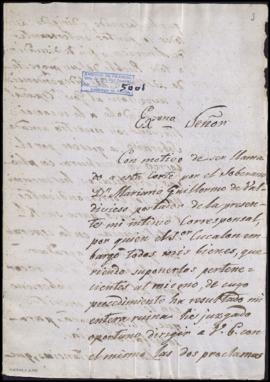 5001
Exmo Señor
Con motivo de ser llama
do a este corte por el Soberano
Dn. Mariano Guillermo de Val
divieso portador de la presen
te mi intimo Corresponsal,
por quien el Sor. Escalan em
bargó todos mis bienes, que
riendo suponerlos pertene
cientes al mismo, de cuyo
procedimiento ha resultado mi
entera ruina: he juzgado
oportuno dirigir a V. E. con
el mismo las dos proclamas